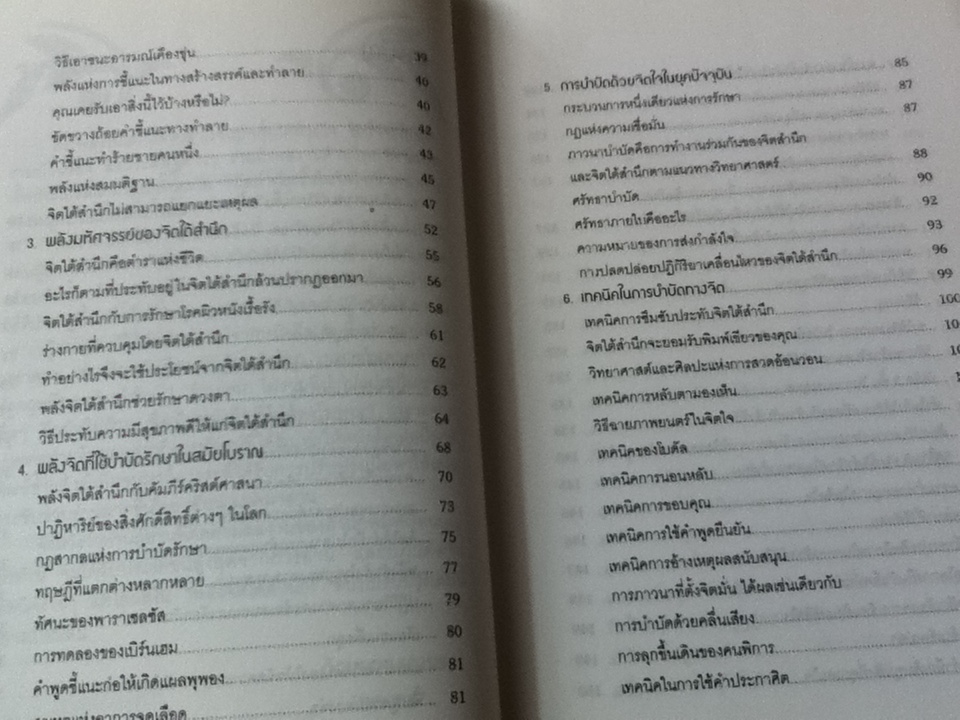 วิธีเอาชนะอารมณ์เคืองขุ่น 39
พลังแห่งการชี้แนะในทางสร้างสรรค์และทำลาย 40
คุณเคยรับเอาสิ่งนี้ไว้บ้างหรือไม่? 40
ขัดขวางถ้อยคำชี้แนะทางทำลาย 42
คำชี้แนะทำร้ายชายคนหนึ่ง 43
พลังแห่งสมมติฐาน 45
จิตใต้สำนึกไม่สามารถแยกแยะเหตุผล 47
3. พลังมหัศจรรย์ของจิตใต้สำนึก 52
จิตใต้สำนึกคือตำราแห่งชีวิต 55
อะไรก็ตามที่ประทับอยู่ในจิตใต้สำนึกล้วนปรากฏออกมา 56
จิตใต้สำนึกกับการรักษาโรคผิวหนังเรื้อรัง 58
ร่างกายที่ควบคุมโดยจิตใต้สำนึก 61
ทำอย่างไรจึงจะใช้ประโยชน์จากจิตใต้สำนึก 62
พลังจิตใต้สำนึกช่วยรักษาดวงตา 63
วิธีประทับความมีสุขภาพดีให้แก่จิตใต้สำนึก 64
4. พลังจิตที่ใช้บำบัดรักษาในสมัยโบราณ 68
พลังจิตใต้สำนึกกับคัมภีร์คริสต์ศาสนา 70
ปาฏิหาริย์ของสิ่งศักดิ์สิทธิ์ต่างๆ ในโลก 73
กฎสากลแห่งการบำบัดรักษา 75
ทฤษฎีที่แตกต่างหลากหลาย 77
ทัศนะของพาราเซลซัส 79
การทดลองของเบิร์นเฮม 80
คำพูดชี้แนะก่อให้เกิดแผลพุพอง 81
แห่งอาการจุดเลือด 81
5. การบำบัดด้วยจิตใจในยุคปัจจุบัน 85
กระบวนการหนึ่งเดียวแห่งการรักษา 87
กฎแห่งความเชื่อมั่น 87
ภาวนาบำบัดคือการทำงานร่วมกันของจิตสำนึก
และจิตใต้สำนึกตามแนวทางวิทยาศาสตร์ 88
ศรัทธาบำบัด 90
ศรัทธาภายในคืออะไร 92
ความหมายของการส่งกำลังใจ 93
การปลดปล่อยปฏิกิริยาเคลื่อนไหวของจิตใต้สำนึก 96
6. เทคนิคในการบำบัดทางจิต 99
เทคนิคการซึมซับประทับจิตใต้สำนึก 100
จิตใต้สำนึกจะยอมรับพิมพ์เขียวของคุณ
วิทยาศาสตร์และศิลปะแห่งการสวดอ้อนวอน
เทคนิคการหลับตามองเห็น
วิธีฉายภาพยนตร์ในจิตใจ
เทคนิคของโบดัล
เทคนิคการนอนหลับ
เทคนิคการขอบคุณ
เทคนิคการใช้คำพูดยืนยัน
เทคนิคการอ้างเหตุผลสนับสนุน
การภาวนาที่ตั้งจิตมั่น ได้ผลเช่นเดียวกับ
การบำบัดด้วยคลื่นเสียง
การลุกขึ้นเดินของคนพิการ
เทคนิคในการใช้คำประกาศิต